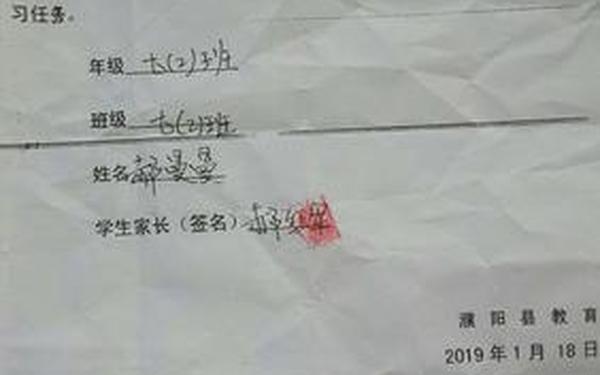 习任务。
年级 七(2)班
班级 七(2)班
姓名 郝曼曼
学生家长（签名）郝
濮阳县教育
2019年1月18日